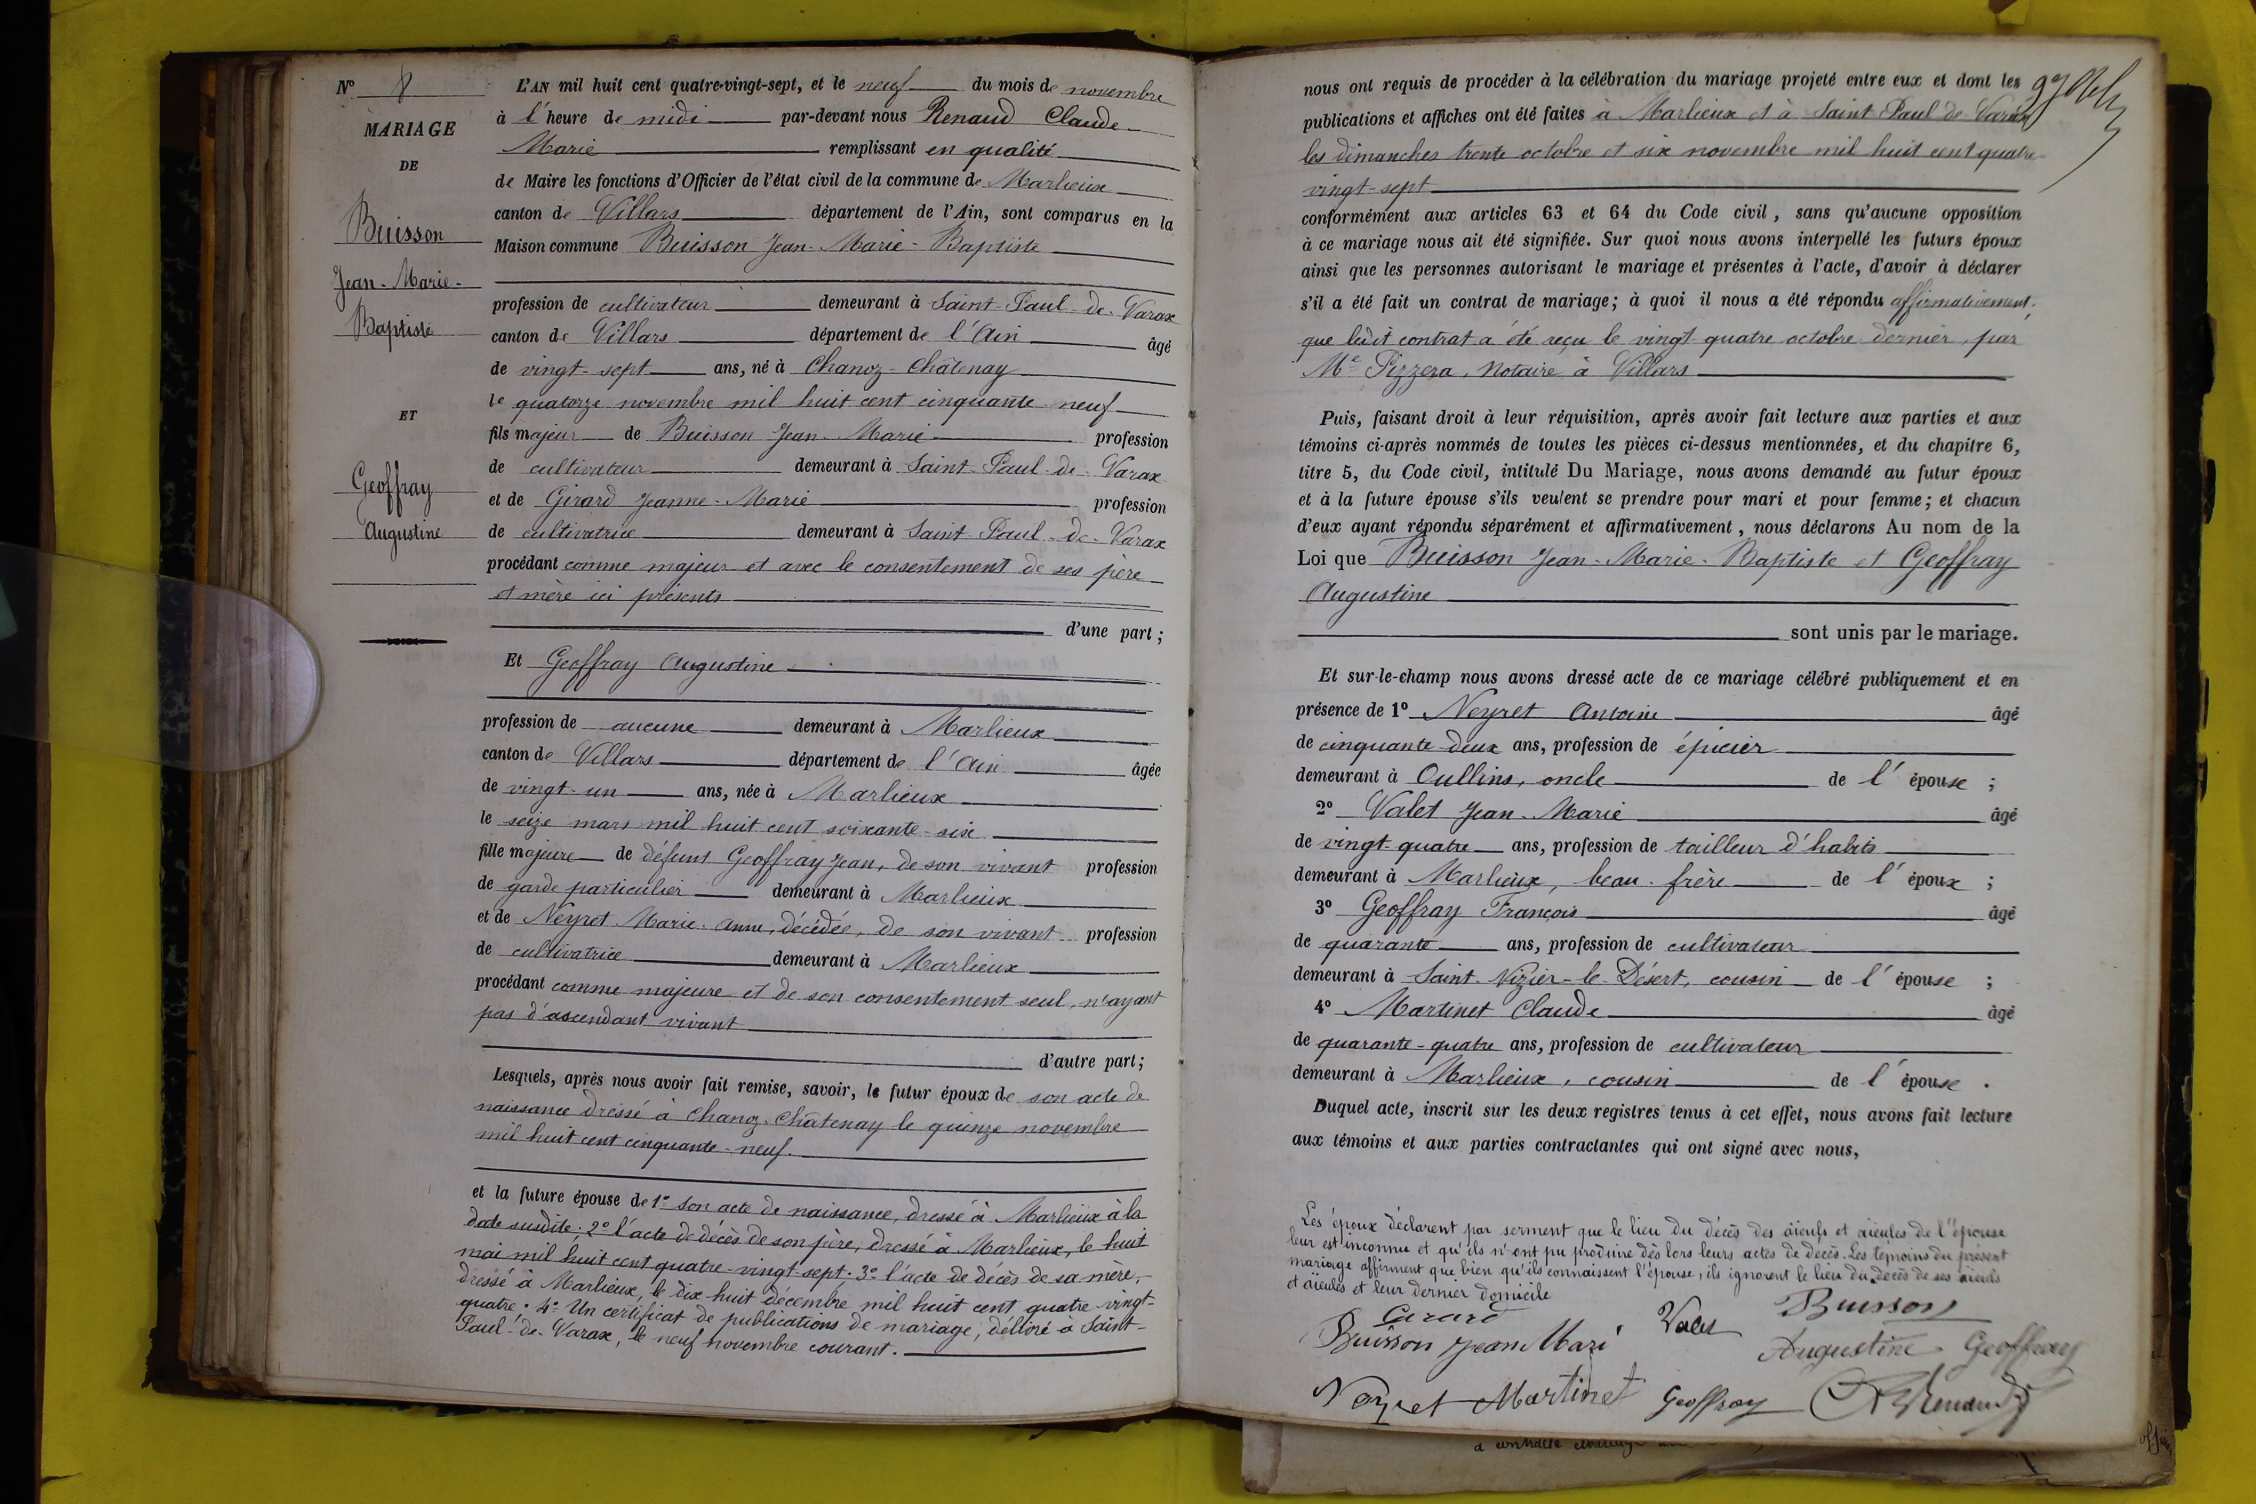 N° 8
MARIAGE
DE
Buisson
Jean-Marie-
Baptiste
ET
Geoffray
Augustine
L'AN mil huit cent quatre-vingt-sept, et le neuf du mois de novembre
à l'heure de midi par-devant nous Renaud Claude
Marie remplissant en qualité
de Maire les fonctions d'Officier de l'état civil de la commune de Marlieux
canton de Villars département de l'Ain, sont comparus en la
Maison commune Buisson Jean-Marie-Baptiste
profession de cultivateur demeurant à Saint-Paul-de-Varax
canton de Villars département de l'Ain âgé
de vingt-sept ans, né à Chanoz-Châtenay
le quatorze novembre mil huit cent cinquante-neuf
fils majeur de Buisson Jean-Marie profession
de cultivateur demeurant à Saint-Paul-de-Varax
et de Girard Jeanne-Marie profession
de cultivatrice demeurant à Saint-Paul-de-Varax
procédant comme majeur et avec le consentement de ses père
et mère ici présents
d'une part;
Et Geoffray Augustine
profession de aucune demeurant à Marlieux
canton de Villars département de l'Ain âgée
de vingt-un ans, née à Marlieux
le seize mars mil huit cent soixante-six
fille majeure de défunt Geoffray Jean, de son vivant profession
de garde particulier demeurant à Marlieux
et de Neyret Marie-Anne, décédée, de son vivant profession
de cultivatrice demeurant à Marlieux
procédant comme majeure et de son consentement seul, n'ayant
pas d'ascendant vivant
d'autre part;
Lesquels, après nous avoir fait remise, savoir, le futur époux de son acte de
naissance dressé à Chanoz-Châtenay le quinze novembre
mil huit cent cinquante-neuf.
et la future épouse de 1° son acte de naissance, dressé à Marlieux à la
date susdite; 2° l'acte de décès de son père, dressé à Marlieux, le huit
mai mil huit cent quatre-vingt-sept. 3° l'acte de décès de sa mère,
dressé à Marlieux, le dix-huit décembre mil huit cent quatre-vingt-
quatre; 4° Un certificat de publications de mariage, délivré à Saint-
Paul-de-Varax, le neuf novembre courant.
nous ont requis de procéder à la célébration du mariage projeté entre eux et dont les
publications et affiches ont été faites à Marlieux et à Saint Paul de Varax
les dimanches trente octobre et six novembre mil huit cent quatre-
vingt-sept
conformément aux articles 63 et 64 du Code civil, sans qu'aucune opposition
à ce mariage nous ait été signifiée. Sur quoi nous avons interpellé les futurs époux
ainsi que les personnes autorisant le mariage et présentes à l'acte, d'avoir à déclarer
s'il a été fait un contrat de mariage; à quoi il nous a été répondu affirmativement;
que ledit contrat a été reçu le vingt quatre octobre dernier, par
Me Pizzera, Notaire à Villars
Puis, faisant droit à leur réquisition, après avoir fait lecture aux parties et aux
témoins ci-après nommés de toutes les pièces ci-dessus mentionnées, et du chapitre 6,
titre 5, du Code civil, intitulé Du Mariage, nous avons demandé au futur époux
et à la future épouse s'ils veulent se prendre pour mari et pour femme; et chacun
d'eux ayant répondu séparément et affirmativement, nous déclarons Au nom de la
Loi que Buisson Jean-Marie-Baptiste et Geoffray
Augustine
sont unis par le mariage.
Et sur-le-champ nous avons dressé acte de ce mariage célébré publiquement et en
présence de 1° Neyret Antoine âgé
de cinquante-deux ans, profession de épicier
demeurant à Oullins, oncle de l'épouse;
2° Valet Jean-Marie âgé
de vingt-quatre ans, profession de tailleur d'habits
demeurant à Marlieux, beau-frère de l'époux;
3° Geoffray François âgé
de quarante ans, profession de cultivateur
demeurant à Saint-Nizier-le-Désert, cousin de l'épouse;
4° Martinet Claude âgé
de quarante-quatre ans, profession de cultivateur
demeurant à Marlieux, cousin de l'épouse.
Duquel acte, inscrit sur les deux registres tenus à cet effet, nous avons fait lecture
aux témoins et aux parties contractantes qui ont signé avec nous,
Les époux déclarent par serment que le lieu du décès des aïeuls et aïeules de l'épouse
leur est inconnu et qu'ils n'ont pu produire dès lors leurs actes de décès. Les témoins du présent
mariage affirment que, bien qu'ils connaissent l'épouse, ils ignorent le lieu du décès de ses aïeuls
et aïeules et leur dernier domicile
Girard Valet Buisson
Buisson Jean Mari Augustine Geoffray
Neyret Martinet Geoffray Renaud